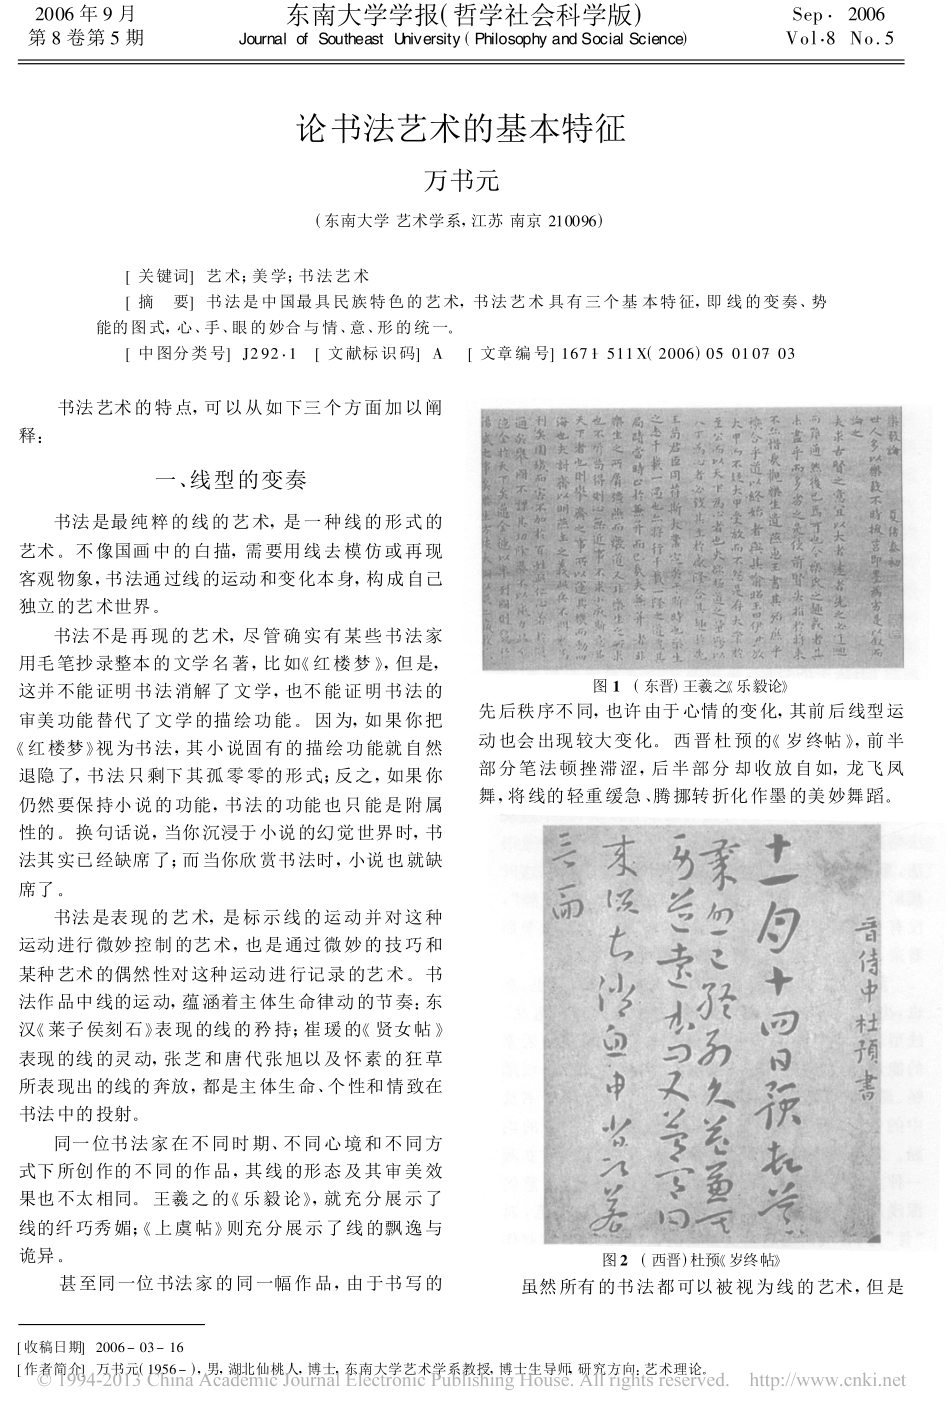 2006年9月
第8卷第5期
东南大学学报(哲学社会科学版)
Journal of Southeast University (Philosophy and Social Science)
Sep· 2006
Vol·8 No.5
论书法艺术的基本特征
万书元
(东南大学 艺术学系,江苏 南京 210096)
[关键词] 艺术;美学;书法艺术
[摘 要] 书法是中国最具民族特色的艺术,书法艺术具有三个基本特征,即线的变奏、势
能的图式,心、手、眼的妙合与情、意、形的统一。
[中图分类号] J292·1 [文献标识码] A [文章编号] 1671-511X(2006)05 0107 03
书法艺术的特点,可以从如下三个方面加以阐
释:
一、线型的变奏
书法是最纯粹的线的艺术,是一种线的形式的
艺术。不像国画中的白描,需要用线去模仿或再现
客观物象,书法通过线的运动和变化本身,构成自己
独立的艺术世界。
书法不是再现的艺术,尽管确实有某些书法家
用毛笔抄录整本的文学名著,比如《红楼梦》,但是,
这并不能证明书法消解了文学,也不能证明书法的
审美功能替代了文学的描绘功能。因为,如果你把
《红楼梦》视为书法,其小说固有的描绘功能就自然
退隐了,书法只剩下其孤零零的形式;反之,如果你
仍然要保持小说的功能,书法的功能也只能是附属
性的。换句话说,当你沉浸于小说的幻觉世界时,书
法其实已经缺席了;而当你欣赏书法时,小说也就缺
席了。
书法是表现的艺术,是标示线的运动并对这种
运动进行微妙控制的艺术,也是通过微妙的技巧和
某种艺术的偶然性对这种运动进行记录的艺术。书
法作品中线的运动,蕴涵着主体生命律动的节奏:东
汉《莱子侯刻石》表现的线的矜持;崔瑗的《贤女帖》
表现的线的灵动,张芝和唐代张旭以及怀素的狂草
所表现出的线的奔放,都是主体生命、个性和情致在
书法中的投射。
同一位书法家在不同时期、不同心境和不同方
式下所创作的不同的作品,其线的形态及其审美效
果也不太相同。王羲之的《乐毅论》,就充分展示了
线的纤巧秀媚;《上虞帖》则充分展示了线的飘逸与
诡异。
甚至同一位书法家的同一幅作品,由于书写的
图1 (东晋)王羲之《乐毅论》
先后秩序不同,也许由于心情的变化,其前后线型运
动也会出现较大变化。西晋杜预的《岁终帖》,前半
部分笔法顿挫滞涩,后半部分却收放自如,龙飞凤
舞,将线的轻重缓急、腾挪转折化作墨的美妙舞蹈。
晋侍中杜预書
十一月十四日預
图2 (西晋)杜预《岁终帖》
虽然所有的书法都可以被视为线的艺术,但是
[收稿日期] 2006-03-16
[作者简介] 万书元(1956-),男,湖北仙桃人,博士,东南大学艺术学系教授,博士生导师,研究方向:艺术理论。
© 1994-2013 China Academic Journal Electronic Publishing House. All rights reserved. http://www.cnki.net